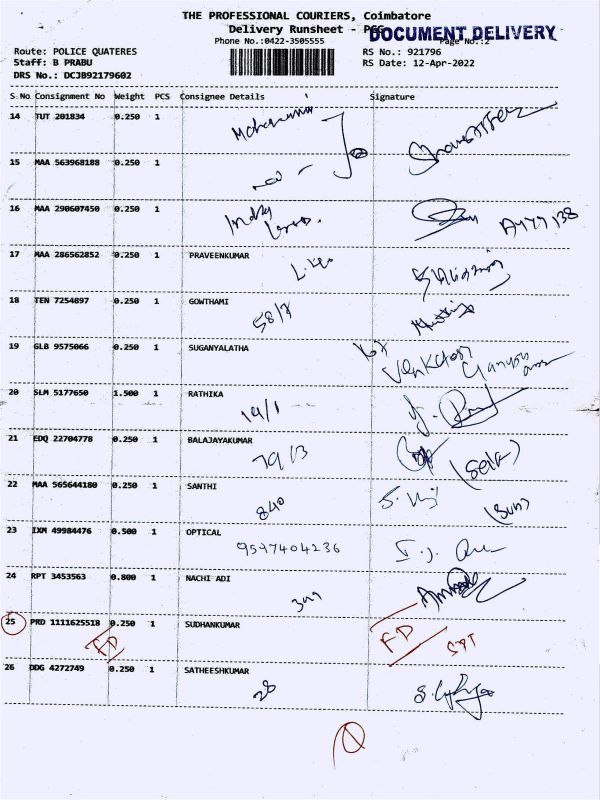 THE PROFESSIONAL COURIERS, Coimbatore
Delivery Runsheet - PGG
DOCUMENT DELIVERY
Phone No.:0422-3505555
Page No.:2
Route: POLICE QUATERES
RS No.: 921796
Staff: B PRABU
RS Date: 12-Apr-2022
DRS No.: DCJB92179602
S.No Consignment No Weight PCS Consignee Details Signature
14 TUT 201834 0.250 1
15 MAA 563968188 0.250 1
16 MAA 290607450 0.250 1
17 MAA 286562852 0.250 1 PRAVEENKUMAR
18 TEN 7254897 0.250 1 GOWTHAMI
58/7
19 GLB 9575066 0.250 1 SUGANYALATHA
20 SLM 5177650 1.500 1 RATHIKA
14/1
21 EDQ 22704778 0.250 1 BALAJAYAKUMAR
79/3 (Self)
22 MAA 565644180 0.250 1 SANTHI
840
23 IXM 49984476 0.500 1 OPTICAL
9597404236
24 RPT 3453563 0.800 1 NACHI ADI
25 PRD 1111625518 0.250 1 SUDHANKUMAR
FD FD
26 DDG 4272749 0.250 1 SATHEESHKUMAR
28